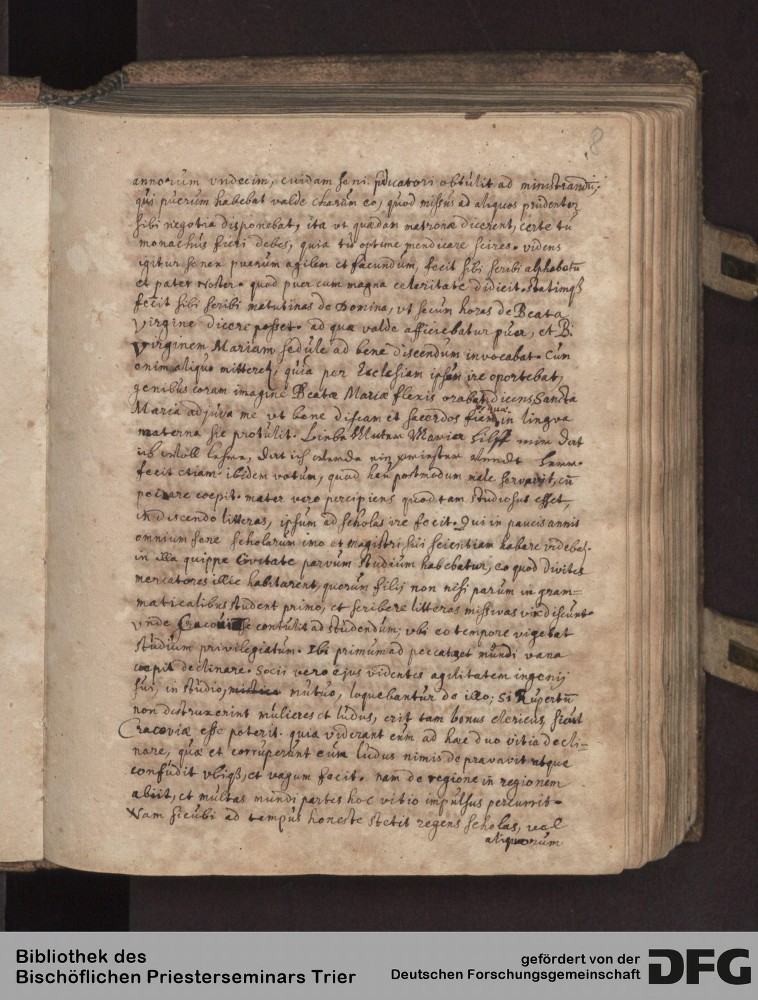 8
annorum vndecim, cuidam seni piscatori obtulit ad ministrandũ,
qui puerum habebat valde charum eo, quod missus ad aliquos prudenter
sibi negotia disponebat, ita vt quædam matronæ dicerent, certe tu
monachus fieri debes, quia tu optime mendicare scires. videns
igitur senex puerum agilem et facundum, fecit sibi scribi alphabetũ
et pater noster. quod puer cum magna celeritate didicit. statimqȝ
fecit sibi scribi matutinas de Domina, vt secum horas de Beata
Virgine dicere posset. ad quæ valde afficiebatur puer, et B.
Virginem Mariam sedule ad bene discendum invocabat. Cum
enim aliquo mitteret, quia per Ecclesiam ipsum ire oportebat,
genibus coram imagine Beatæ Mariæ flexis orabat dicens Sancta
Maria adjuva me vt bene discam et sacerdos fiam, in lingva
materna sic protulit. Liebe Mutter Maria hilff mir dat
ich woll lehre, dat ich werde ein
fecit etiam ibidem votum, quod postmodum male servavit, cũ
peccare coepit. mater vero percipiens quod tam studiosus esset,
in discendo litteras, ipsum ad scholas ire fecit. Qui in paucis annis
omnium fere scholarum imo et magistri sui scientiam habere videbat.
in illa quippe Civitate parvum studium habebatur, eo quod divites
mercatores illic habitarent, quorum filij non nisi parum in gram=
maticalibus student primo, et scribere litteras missivas vix discunt.
vnde se contulit ad studendum; vbi eo tempore vigebat
studium privilegiatum. Ibi primum ad peccata et mundi vana
coepit declinare. Socii vero ejus videntes agilitatem ingenij
sui, in studio, mutuo, loquebantur de illo; Si Rupertũ
non distruxerint mulieres et ludus, erit tam bonus clericus, sicut
Cracoviæ esse poterit. quia viderant eum ad hæc duo vitia decli=
nare, quæ et corruperunt eum ludus nimis depravavit atque
confudit vbiqȝ, et vagum fecit. nam de regione in regionem
abiit, et multas mundi partes hoc vitio impulsus percurrit.
Nam sicubi ad tempus honeste stetit regens scholas, vel
aliquorum
Bibliothek des
Bischöflichen Priesterseminars Trier
gefördert von der
Deutschen Forschungsgemeinschaft
DFG